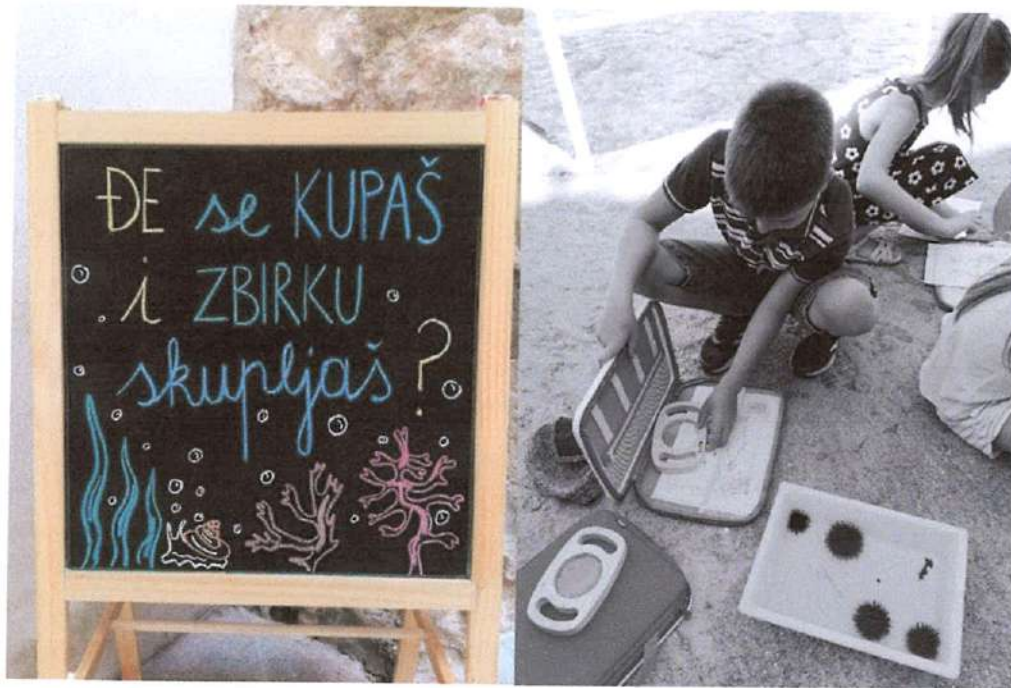 ĐE se KUPAŠ
i ZBIRKU
skupljaš?